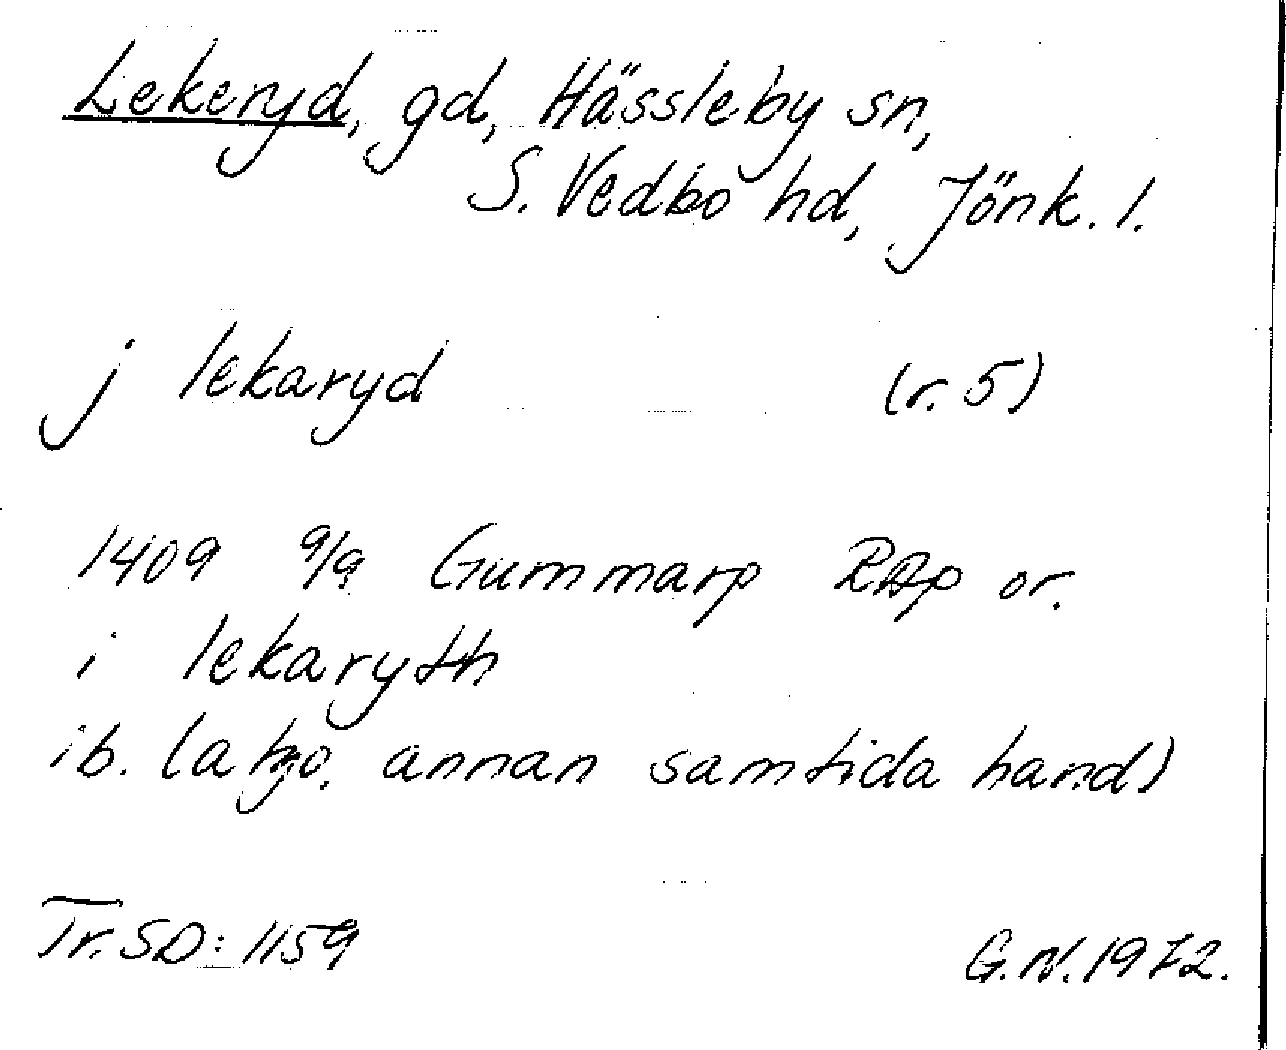 Lekeryd, gd, Hässleby sn,
S. Vedbo hd, Jönk. l.
j lekaryd (r. 5)
1409 9/9 Gummarp RAp or.
i lekaryth
ib. (a tergo, annan samtida hand)
Tr. SD: 1159
G.N. 1972.